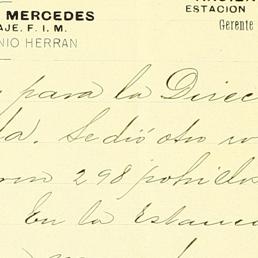 MERCEDES
AJE. F. I. M.
NIO HERRAN
ESTACION
Gerente
para la Direc
da. Se dió otro
ron 298 pohidos
En la Estanc